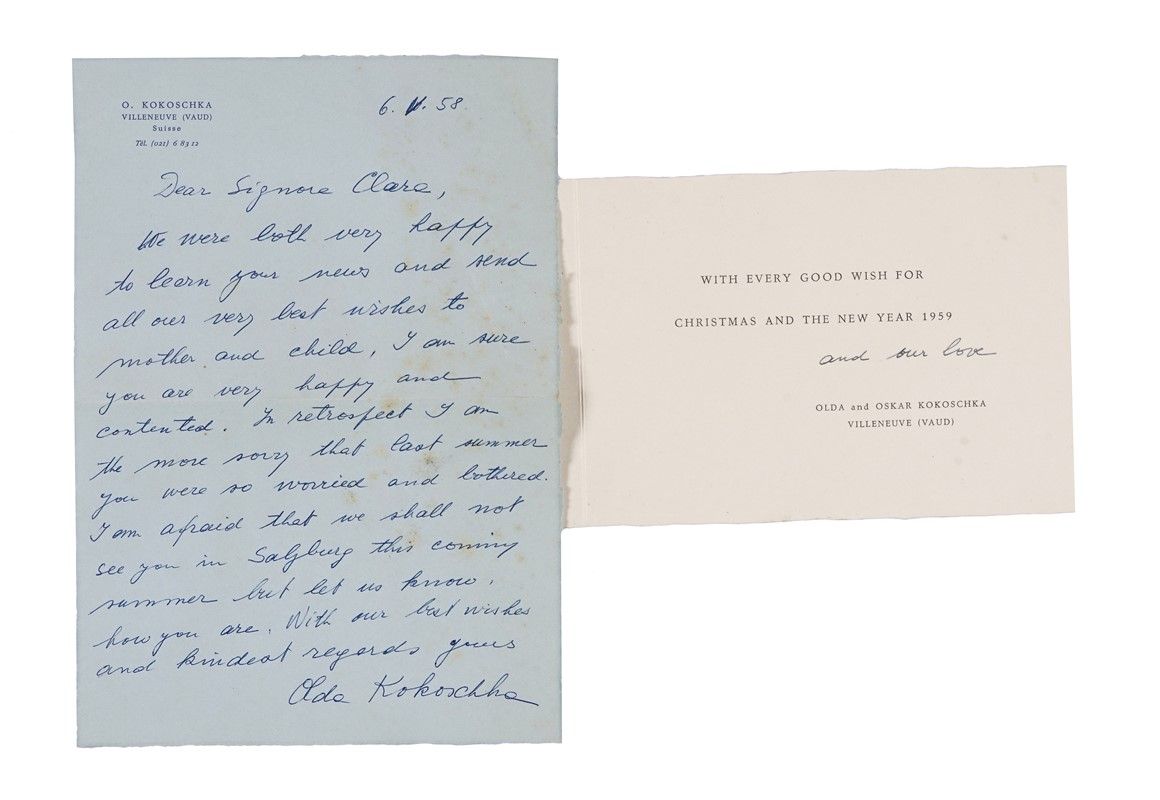 O. KOKOSCHKA
VILLENEUVE (VAUD)
Suisse
Tél. (021) 6 83 12
6. V. 58.
Dear Signora Clara,
We were both very happy
to learn your news and send
all our very best wishes to
mother and child, I am sure
you are very happy and
contented. In retrospect I am
the more sorry that last summer
you were so worried and bothered.
I am afraid that we shall not
see you in Salzburg this coming
summer but let us know,
how you are. With our best wishes
and kindest regards yours
Olda Kokoschka
WITH EVERY GOOD WISH FOR
CHRISTMAS AND THE NEW YEAR 1959
and our love
OLDA and OSKAR KOKOSCHKA
VILLENEUVE (VAUD)